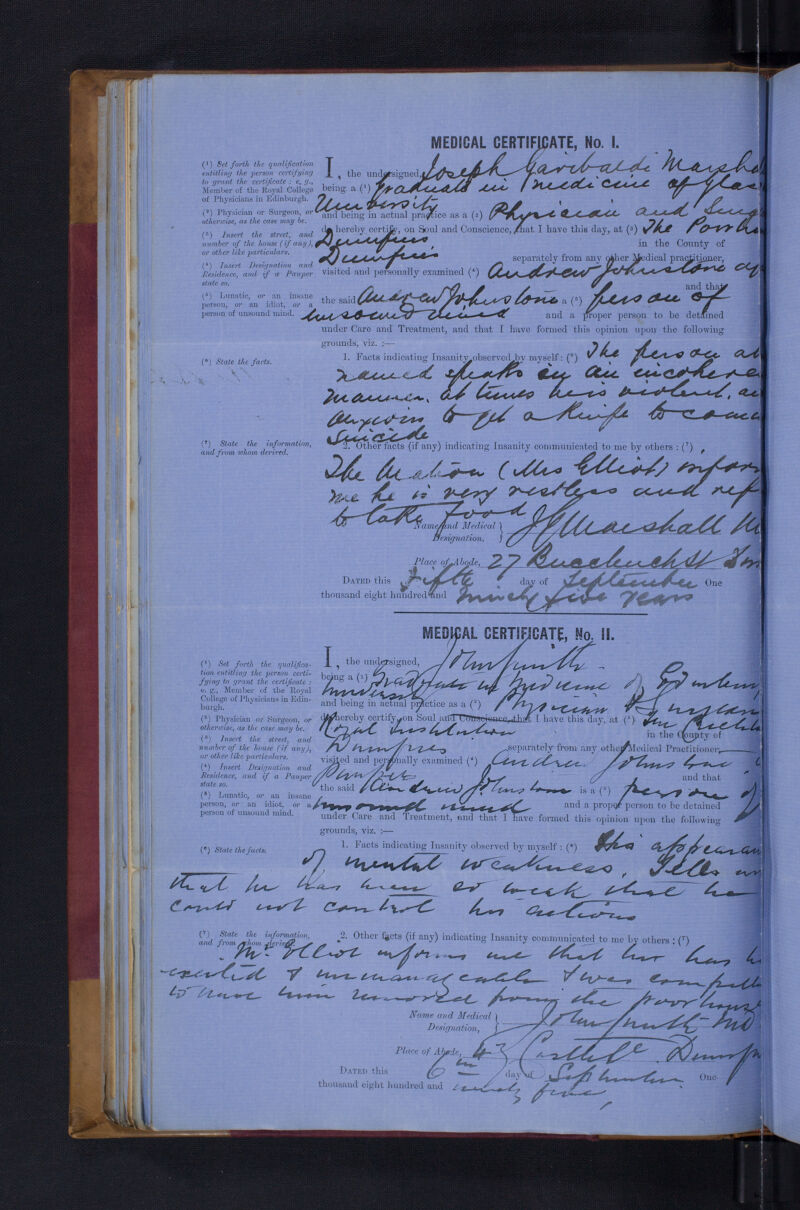 MEDICAL CERTIFICATE, No. I.
(¹) Set forth the qualification
entitling the person certifying
to grant the certificate: e. g.,
Member of the Royal College
of Physicians in Edinburgh.
(²) Physician or Surgeon, or
otherwise, as the case may be.
(³) Insert the street, and
number of the house (if any),
or other like particulars.
(⁴) Insert Designation and
Residence, and if a Pauper
state so.
(⁵) Lunatic, or an insane
person, or an idiot, or a
person of unsound mind.
(⁶) State the facts.
(⁷) State the information,
and from whom derived.
I, the undersigned, Joseph Garibaldi Marsha
being a (¹) Graduate in medicine of Glas
University
and being in actual practice as a (²) Physician and Surg
hereby certify, on Soul and Conscience, that I have this day, at (³) The Poorho
Dumfries in the County of
Dumfries separately from any other Medical practitioner,
visited and personally examined (⁴) Andrew Johnstone
and that
the said Andrew Johnstone a (⁵) person of
unsound mind and a proper person to be detained
under Care and Treatment, and that I have formed this opinion upon the following
grounds, viz. :—
1. Facts indicating Insanity observed by myself: (⁶) The person ab
named speaks in an incohere
manner. At times he is violent, an
anxious to get a Knife to com
Suicide
2. Other facts (if any) indicating Insanity communicated to me by others : (⁷)
The Matron (Mrs Elliot) infor
me he is very restless and ref
to take food
Name and Medical
Designation, J G Marshall M
Place of Abode, 27 Buccleuch St Dum
DATED this Fifth day of September One
thousand eight hundred and ninety five years
MEDICAL CERTIFICATE, No. II.
(¹) Set forth the qualifica-
tion entitling the person certi-
fying to grant the certificate :
e. g., Member of the Royal
College of Physicians in Edin-
burgh.
(²) Physician or Surgeon, or
otherwise, as the case may be.
(³) Insert the street, and
number of the house (if any),
or other like particulars.
(⁴) Insert Designation and
Residence, and if a Pauper
state so.
(⁵) Lunatic, or an insane
person, or an idiot, or a
person of unsound mind.
(⁶) State the facts.
I, the undersigned, John Smith
being a (¹) Graduate in Medicine of Edinburg
University
and being in actual practice as a (²) Physician & Surgeon
do hereby certify, on Soul and Conscience, that I have this day, at (³) The Crichto
Royal Institution in the County of
Dumfries separately from any other Medical Practitioner,
visited and personally examined (⁴) Andrew Johnstone
Pauper and that
the said Andrew Johnstone is a (⁵) person of
unsound mind and a proper person to be detained
under Care and Treatment, and that I have formed this opinion upon the following
grounds, viz. :—
1. Facts indicating Insanity observed by myself : (⁶) His appearan
of mental weakness. Tells me
that he has been so weak that he
could not control his actions
(⁷) State the information,
and from whom derived.
2. Other facts (if any) indicating Insanity communicated to me by others : (⁷)
Mr Elliot informs me that he has b
excited & unmanageable & was compelle
to have him removed from the poorhouse
Name and Medical
Designation, John Smith MD
Place of Abode, Castle St Dumfr
DATED this 6th day of September One
thousand eight hundred and ninety five,